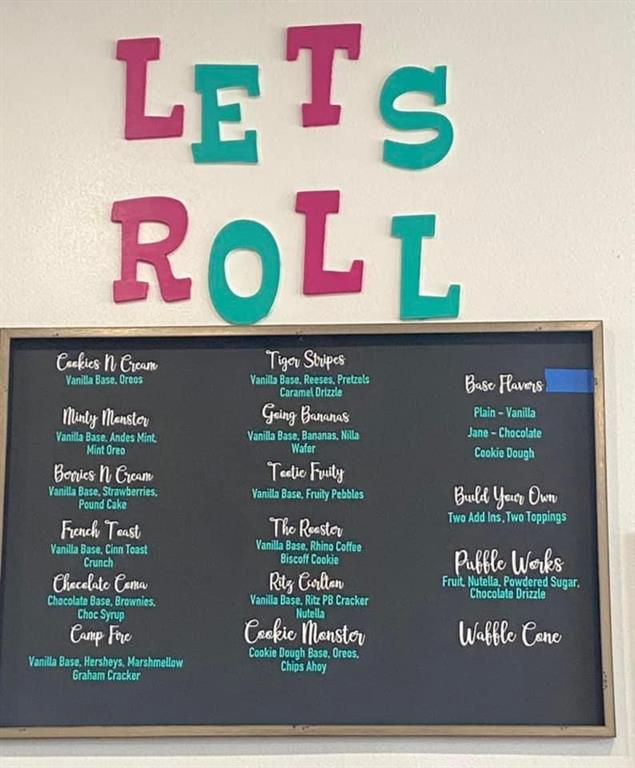 LETS
ROLL
Cookies N Cream
Vanilla Base, Oreos
Minty Monster
Vanilla Base, Andes Mint,
Mint Oreo
Berries N Cream
Vanilla Base, Strawberries,
Pound Cake
French Toast
Vanilla Base, Cinn Toast
Crunch
Chocolate Coma
Chocolate Base, Brownies,
Choc Syrup
Camp Fire
Vanilla Base, Hersheys, Marshmellow
Graham Cracker
Tiger Stripes
Vanilla Base, Reeses, Pretzels
Caramel Drizzle
Going Bananas
Vanilla Base, Bananas, Nilla
Wafer
Tootie Fruity
Vanilla Base, Fruity Pebbles
The Rooster
Vanilla Base, Rhino Coffee
Biscoff Cookie
Ritz Carlton
Vanilla Base, Ritz PB Cracker
Nutella
Cookie Monster
Cookie Dough Base, Oreos,
Chips Ahoy
Base Flavors
Plain - Vanilla
Jane - Chocolate
Cookie Dough
Build Your Own
Two Add Ins, Two Toppings
Puffle Works
Fruit, Nutella, Powdered Sugar,
Chocolate Drizzle
Waffle Cone